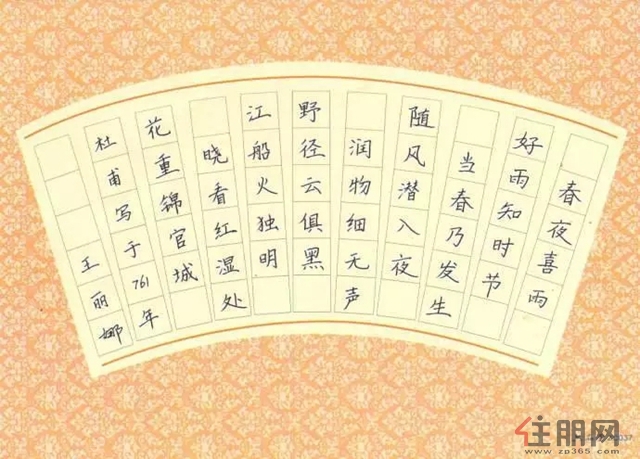 春夜喜雨
好雨知时节
当春乃发生
随风潜入夜
润物细无声
野径云俱黑
江船火独明
晓看红湿处
花重锦官城
杜甫写于761年
王丽娜
住朋网
www.zp365.com